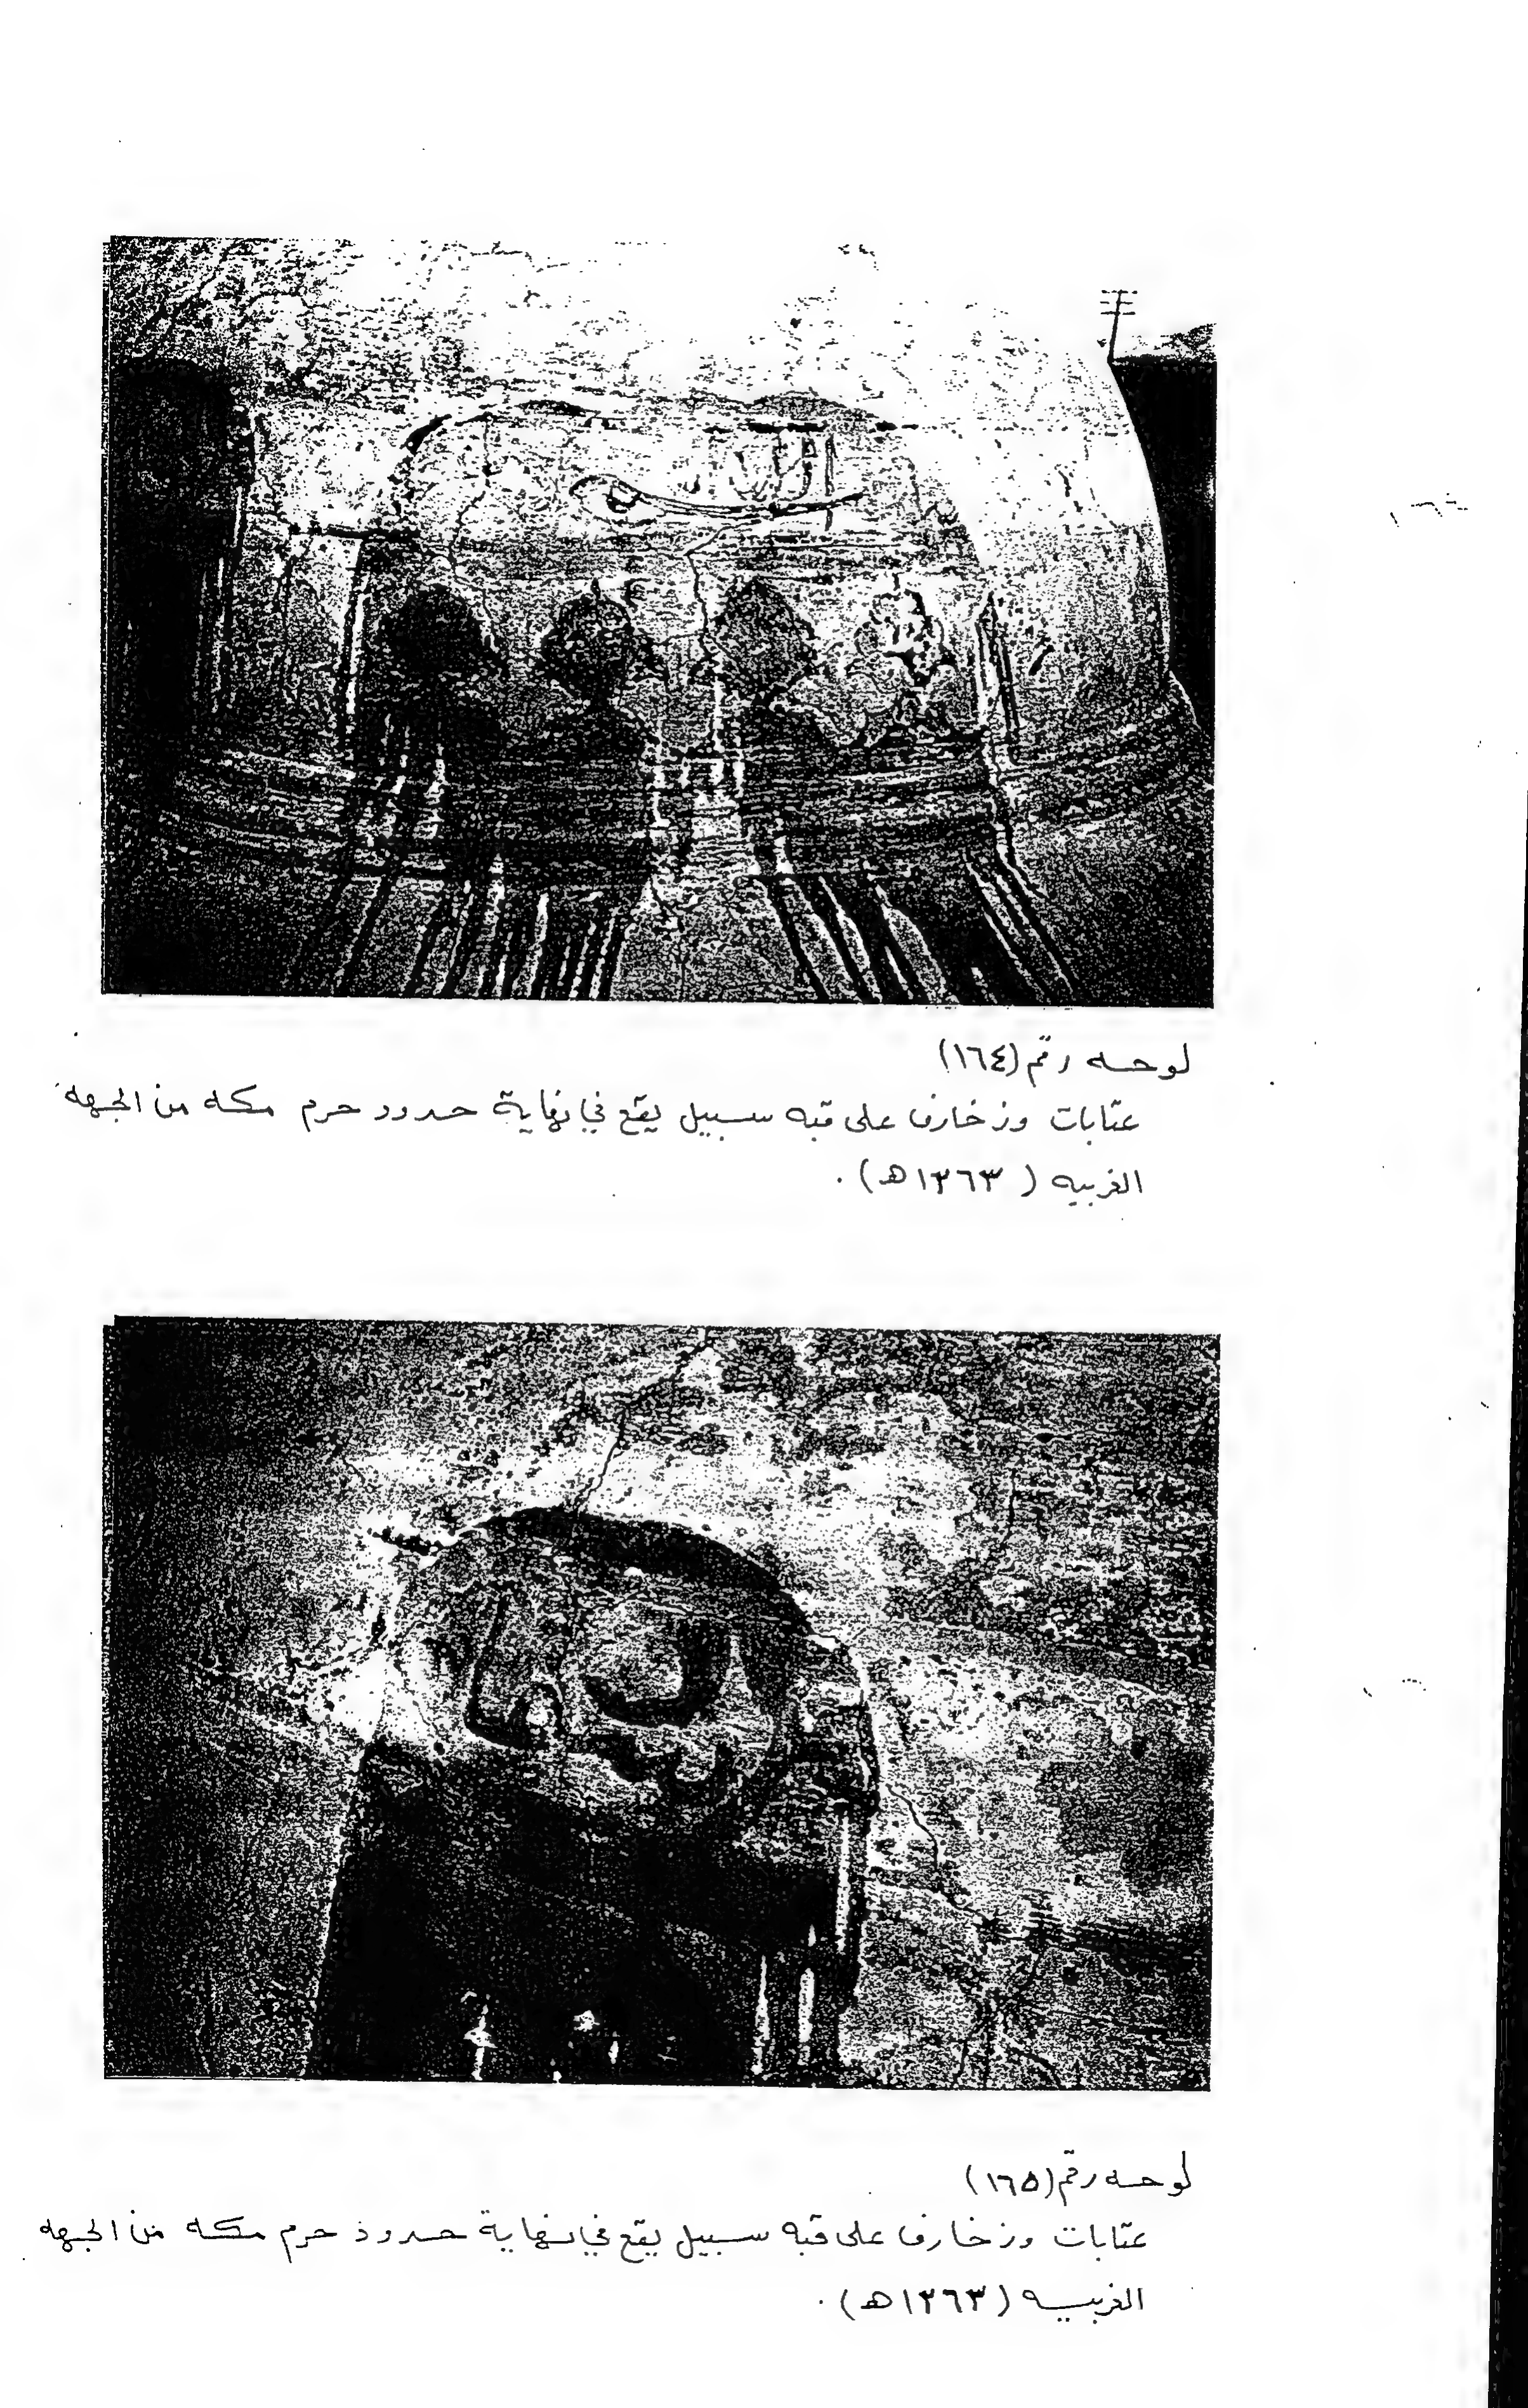 لوحه رقم (١٦٤)
عتابات وزخارف على قبه سبيل يقع في نهاية حدود حرم مكه من الجهه
الغربيه (١٣٦٣هـ).
لوحه رقم (١٦٥)
عتابات وزخارف على قبه سبيل يقع في نهاية حدود حرم مكه من الجهه
الغربيه (١٣٦٣هـ).